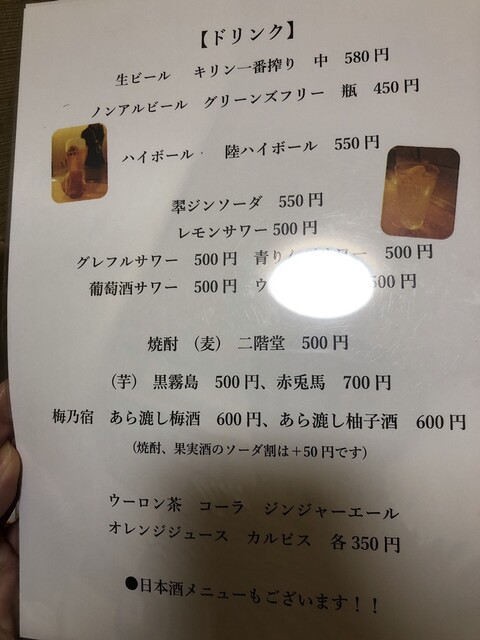 【ドリンク】
生ビール キリン一番搾り 中 580円
ノンアルビール グリーンズフリー 瓶 450円
ハイボール 陸ハイボール 550円
翠ジンソーダ 550円
レモンサワー 500円
グレフルサワー 500円 青りんごサワー 500円
葡萄酒サワー 500円 ウ 500円
焼酎 (麦) 二階堂 500円
(芋) 黒霧島 500円、赤兎馬 700円
梅乃宿 あら漉し梅酒 600円、あら漉し柚子酒 600円
(焼酎、果実酒のソーダ割は+50円です)
ウーロン茶 コーラ ジンジャーエール
オレンジジュース カルピス 各350円
●日本酒メニューもございます!!